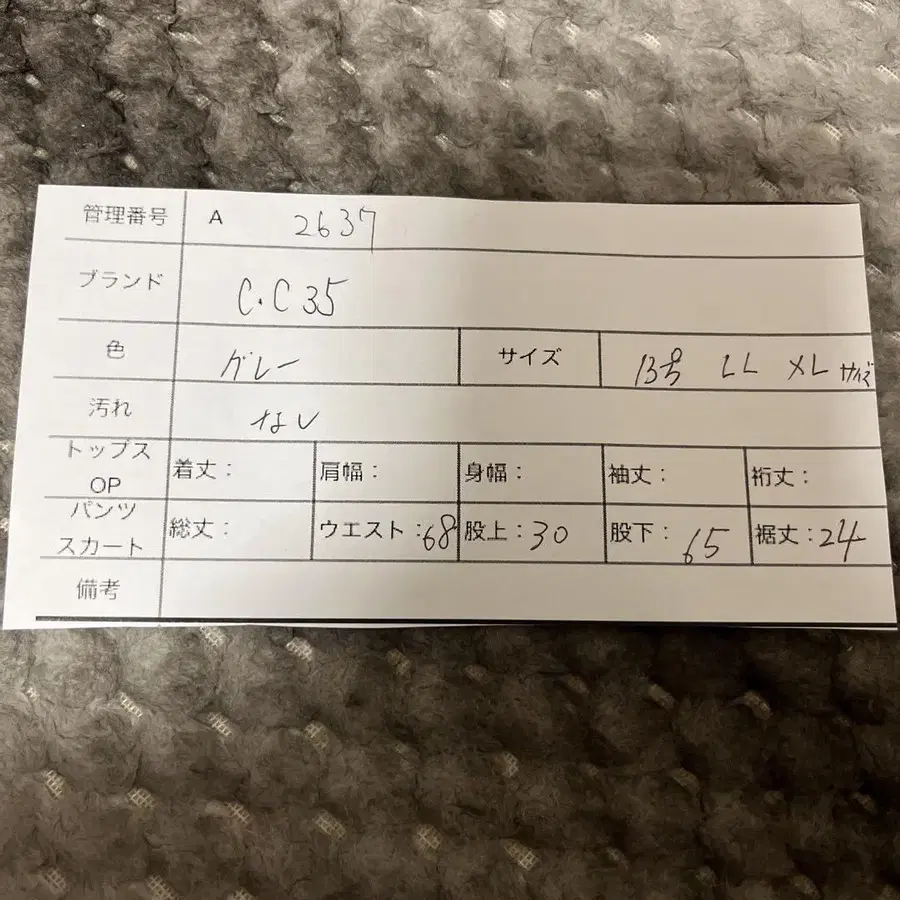 管理番号 A 2637
ブランド C.C35
色 グレー サイズ 13号 LL XL サイズ
汚れ なし
トップス OP 着丈: 肩幅: 身幅: 袖丈: 裄丈:
パンツ スカート 総丈: ウエスト:68 股上:30 股下:65 裾丈:24
備考